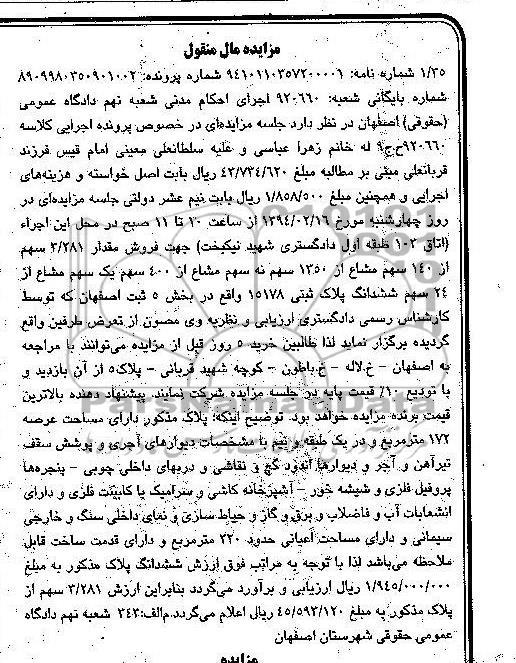 مزایده مال منقول
۱/۳۵ شماره نامه: ۹۴۱۰۱۱۰۳۵۷۲۰۰۰۰۶ شماره پرونده: ۸۹۰۹۹۸۰۳۵۰۹۰۱۰۰۲
شماره بایگانی شعبه: ۹۲۰۶۶۰ اجرای احکام مدنی شعبه نهم دادگاه عمومی
(حقوقی) اصفهان در نظر دارد جلسه مزایده‌ای در خصوص پرونده اجرایی کلاسه
۹۲۰۶۶۰ج.ح۹ له خانم زهرا عباسی و علیه سلطانعلی معینی امام قیس فرزند
قربانعلی مبنی بر مطالبه مبلغ ۴۳/۷۳۴/۶۲۰ ریال بابت اصل خواسته و هزینه‌های
اجرایی و همچنین مبلغ ۱/۸۵۸/۵۰۰ ریال بابت نیم عشر دولتی جلسه مزایده‌ای در
روز چهارشنبه مورخ ۱۳۹۴/۰۲/۱۶ از ساعت ۱۰ تا ۱۱ صبح در محل این اجراء
(اتاق ۱۰۲ طبقه اول دادگستری شهید نیکبخت) جهت فروش مقدار ۳/۲۸۱ سهم
از ۱۴۰ سهم مشاع از ۱۳۵۰ سهم نه سهم مشاع از ۴۰۰ سهم یک سهم مشاع از
۲۴ سهم ششدانگ پلاک ثبتی ۱۵۱۷۸ واقع در بخش ۵ ثبت اصفهان که توسط
کارشناس رسمی دادگستری ارزیابی و نظریه وی مصون از تعرض طرفین واقع
گردیده برگزار نماید لذا طالبین خرید ۵ روز قبل از مزایده می‌توانند با مراجعه
به اصفهان – خ.لاله – خ.باطون – کوچه شهید قربانی – پلاک۵ از آن بازدید و
با تودیع ۱۰٪ قیمت پایه در جلسه مزایده شرکت نمایند. پیشنهاد دهنده بالاترین
قیمت برنده مزایده خواهد بود. توضیح اینکه: پلاک مذکور دارای مساحت عرصه
۱۷۲ مترمربع و در یک طبقه و نیم با مشخصات دیوارهای آجری و پوشش سقف
تیرآهن و آجر و دیوارها اندود گچ و نقاشی و دربهای داخلی چوبی – پنجره‌ها
پروفیل فلزی و شیشه خور – آشپزخانه کاشی و سرامیک با کابینت فلزی و دارای
انشعابات آب و فاضلاب و برق و گاز و حیاط سازی و نمای داخلی سنگ و خارجی
سیمانی و دارای مساحت اعیانی حدود ۲۲۰ مترمربع و دارای قدمت ساخت قابل
ملاحظه می‌باشد لذا با توجه به مراتب فوق ارزش ششدانگ پلاک مذکور به مبلغ
۱/۹۴۵/۰۰۰/۰۰۰ ریال ارزیابی و برآورد می‌گردد بنابراین ارزش ۳/۲۸۱ سهم از
پلاک مذکور به مبلغ ۴۵/۵۹۳/۱۲۰ ریال اعلام می‌گردد.م‌الف:۳۴۳ شعبه نهم دادگاه
عمومی حقوقی شهرستان اصفهان
مزایده